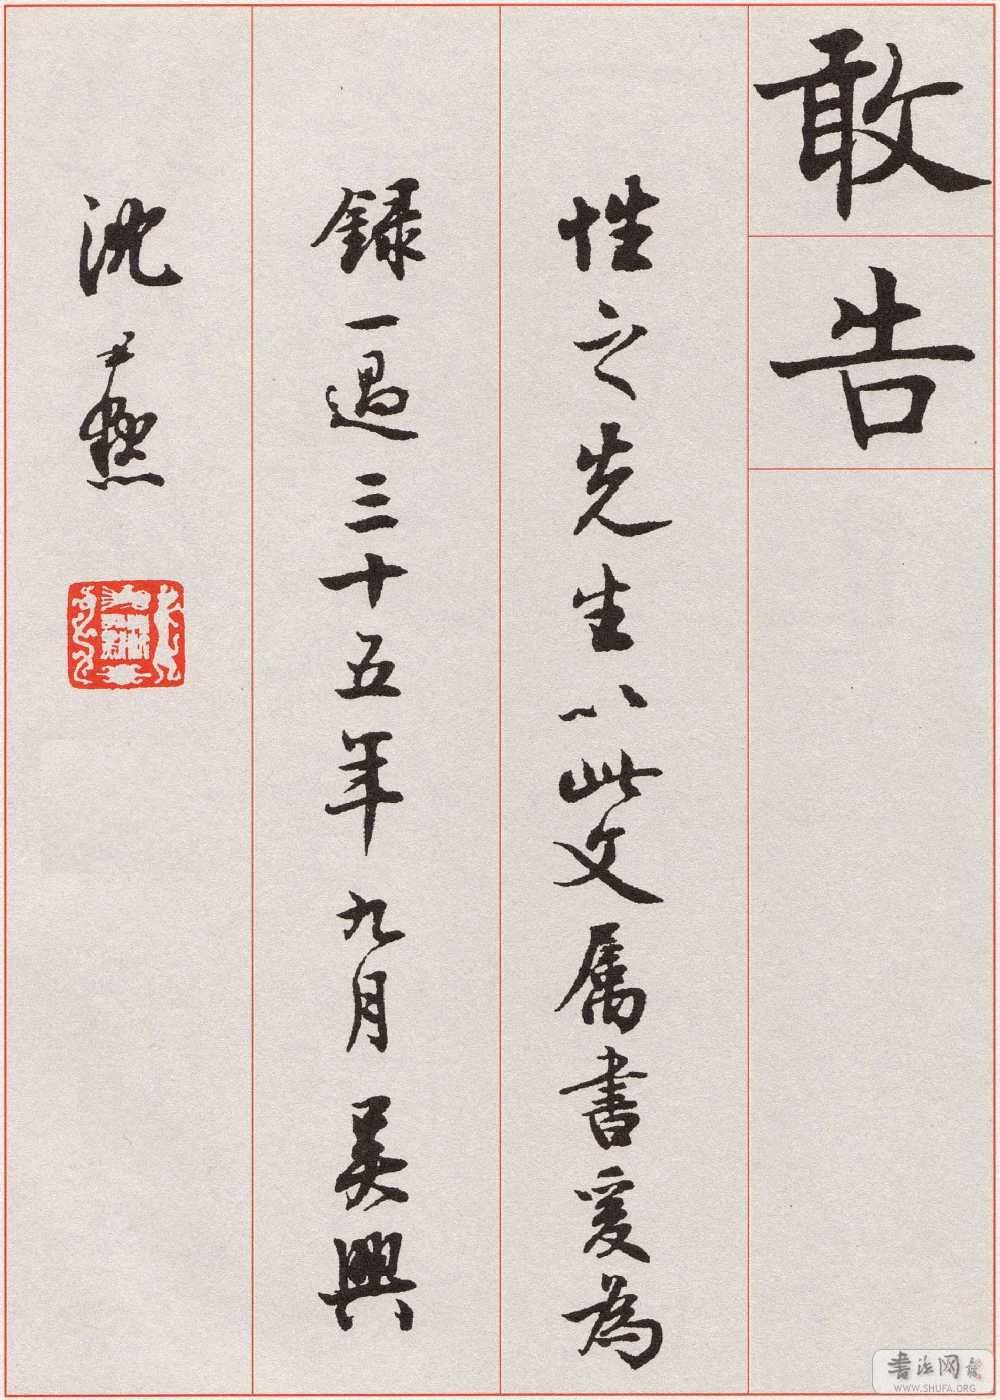 敢告
性之先生以此文属書爰為
録一過三十五年九月吴興
沈尹默
書法网
WWW.SHUFA.ORG